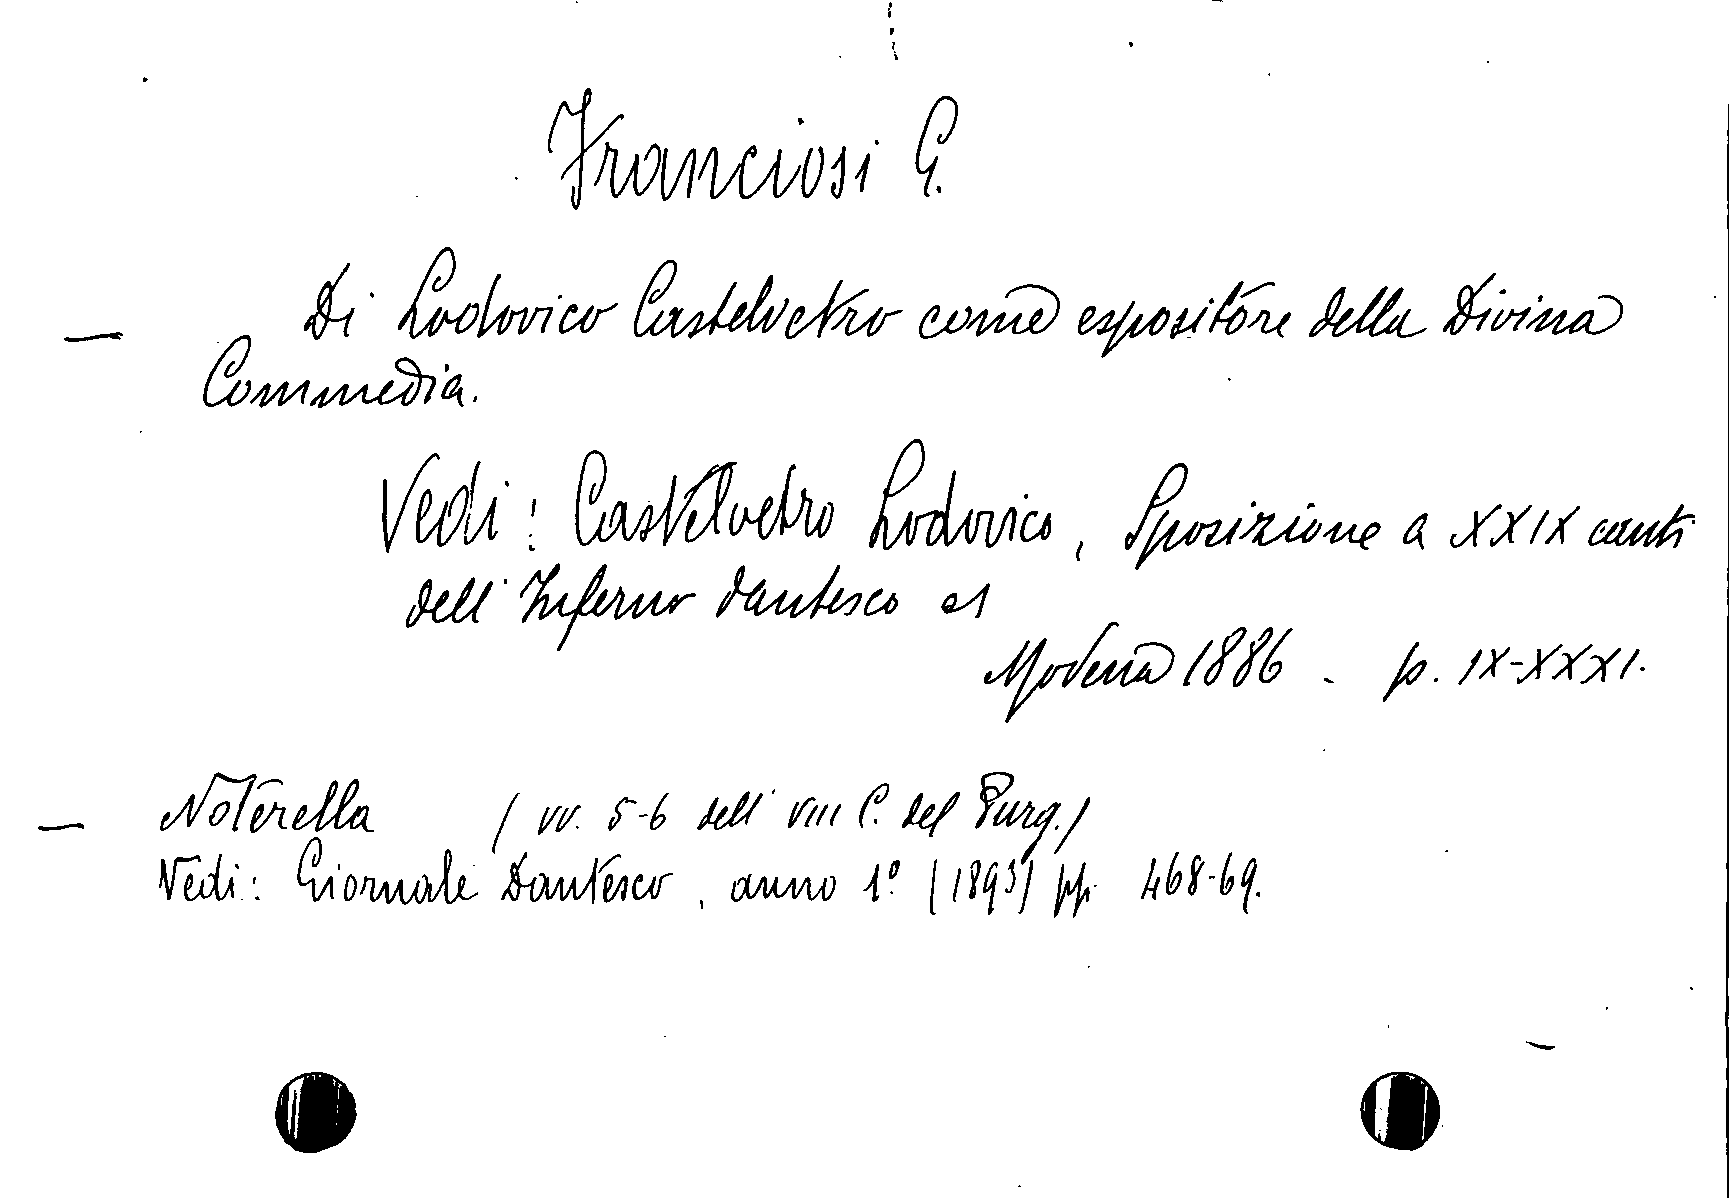 Franciosi G.
— Di Lodovico Castelvetro come espositore della Divina
Commedia.
Vedi: Castelvetro Lodovico, Sposizione a XXIX canti
dell'Inferno dantesco
Modena 1886 - p. IX-XXXI.
— Noterella (vv. 5-6 dell' VIII C. del Purg.)
Vedi: Giornale Dantesco, anno 1º (1893) pp. 468-69.